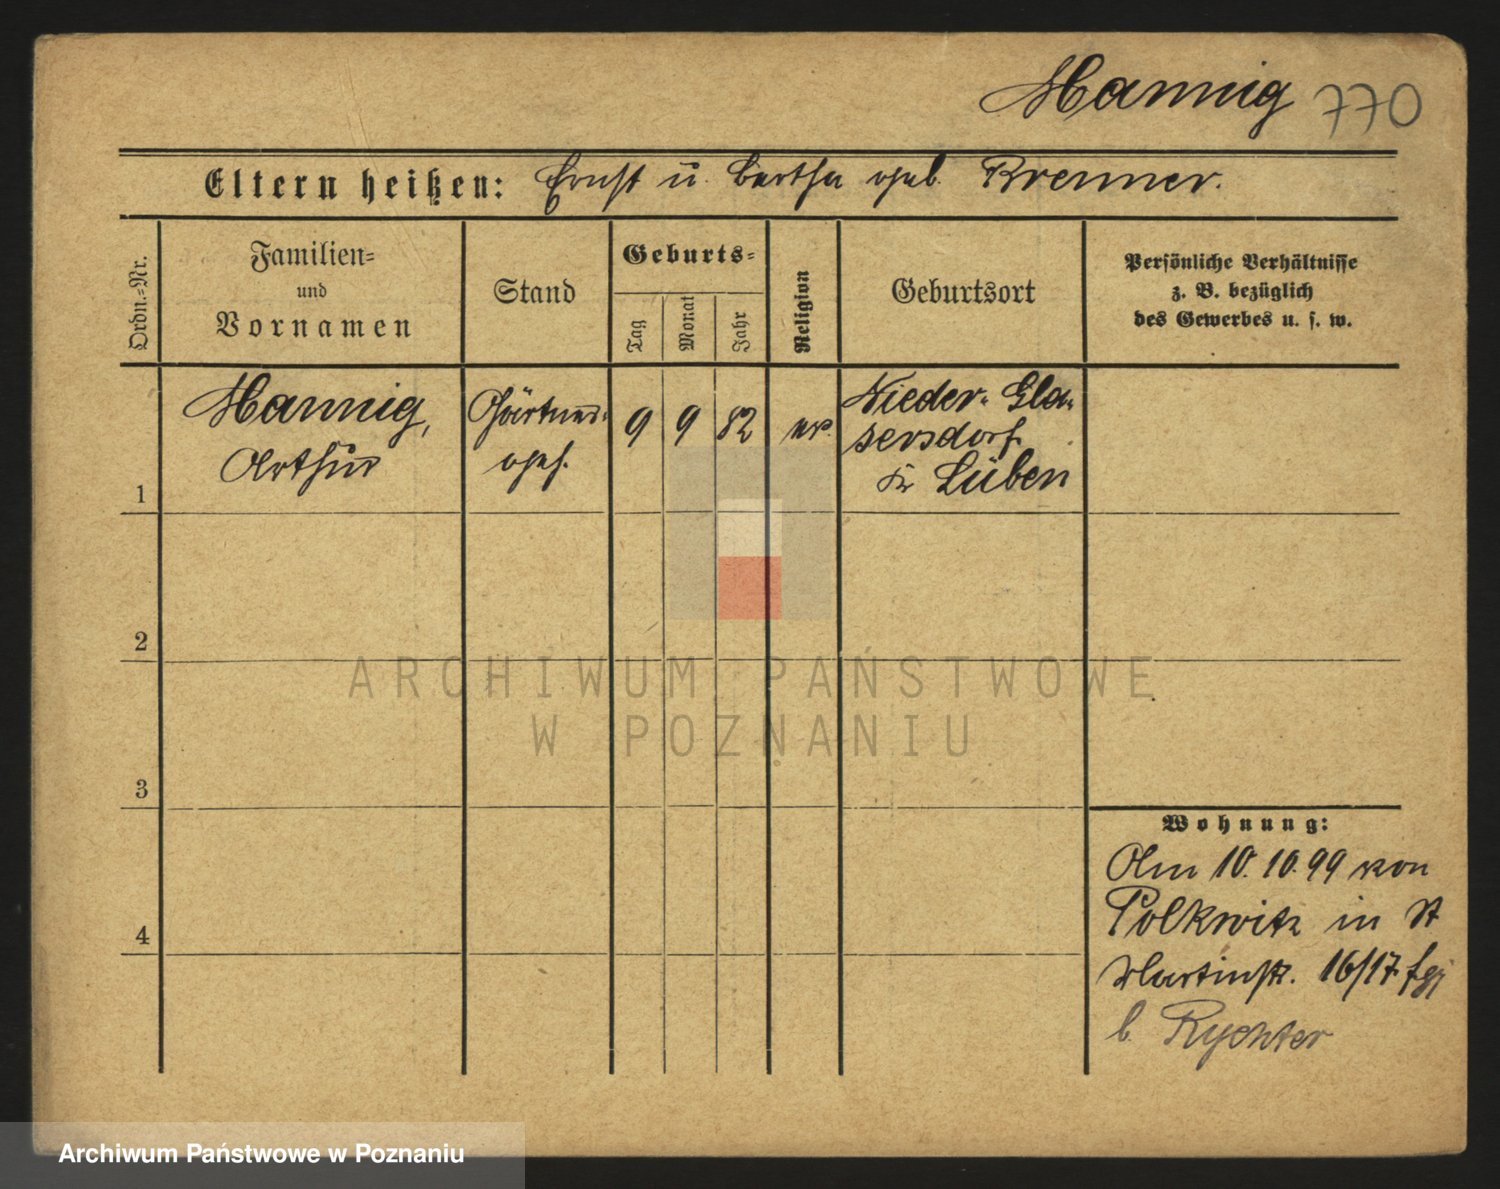 Mannig 770
Eltern heißen: Ernst u. Bertha geb. Brenner.
Ordn.-Nr.
Familien-
und
Vornamen
Stand
Geburts-
Tag
Monat
Jahr
Religion
Geburtsort
Persönliche Verhältnisse
z. B. bezüglich
des Gewerbes u. s. w.
1
Mannig,
Arthur
Gärtner-
geh.
9
9
82
ev.
Nieder-Gla-
sersdorf
Kr Lüben
2
3
4
Wohnung:
Am 10.10.99 von
Polkwitz in St
Martinstr. 16/17
b. Rychter
ARCHIWUM PAŃSTWOWE
W POZNANIU
Archiwum Państwowe w Poznaniu